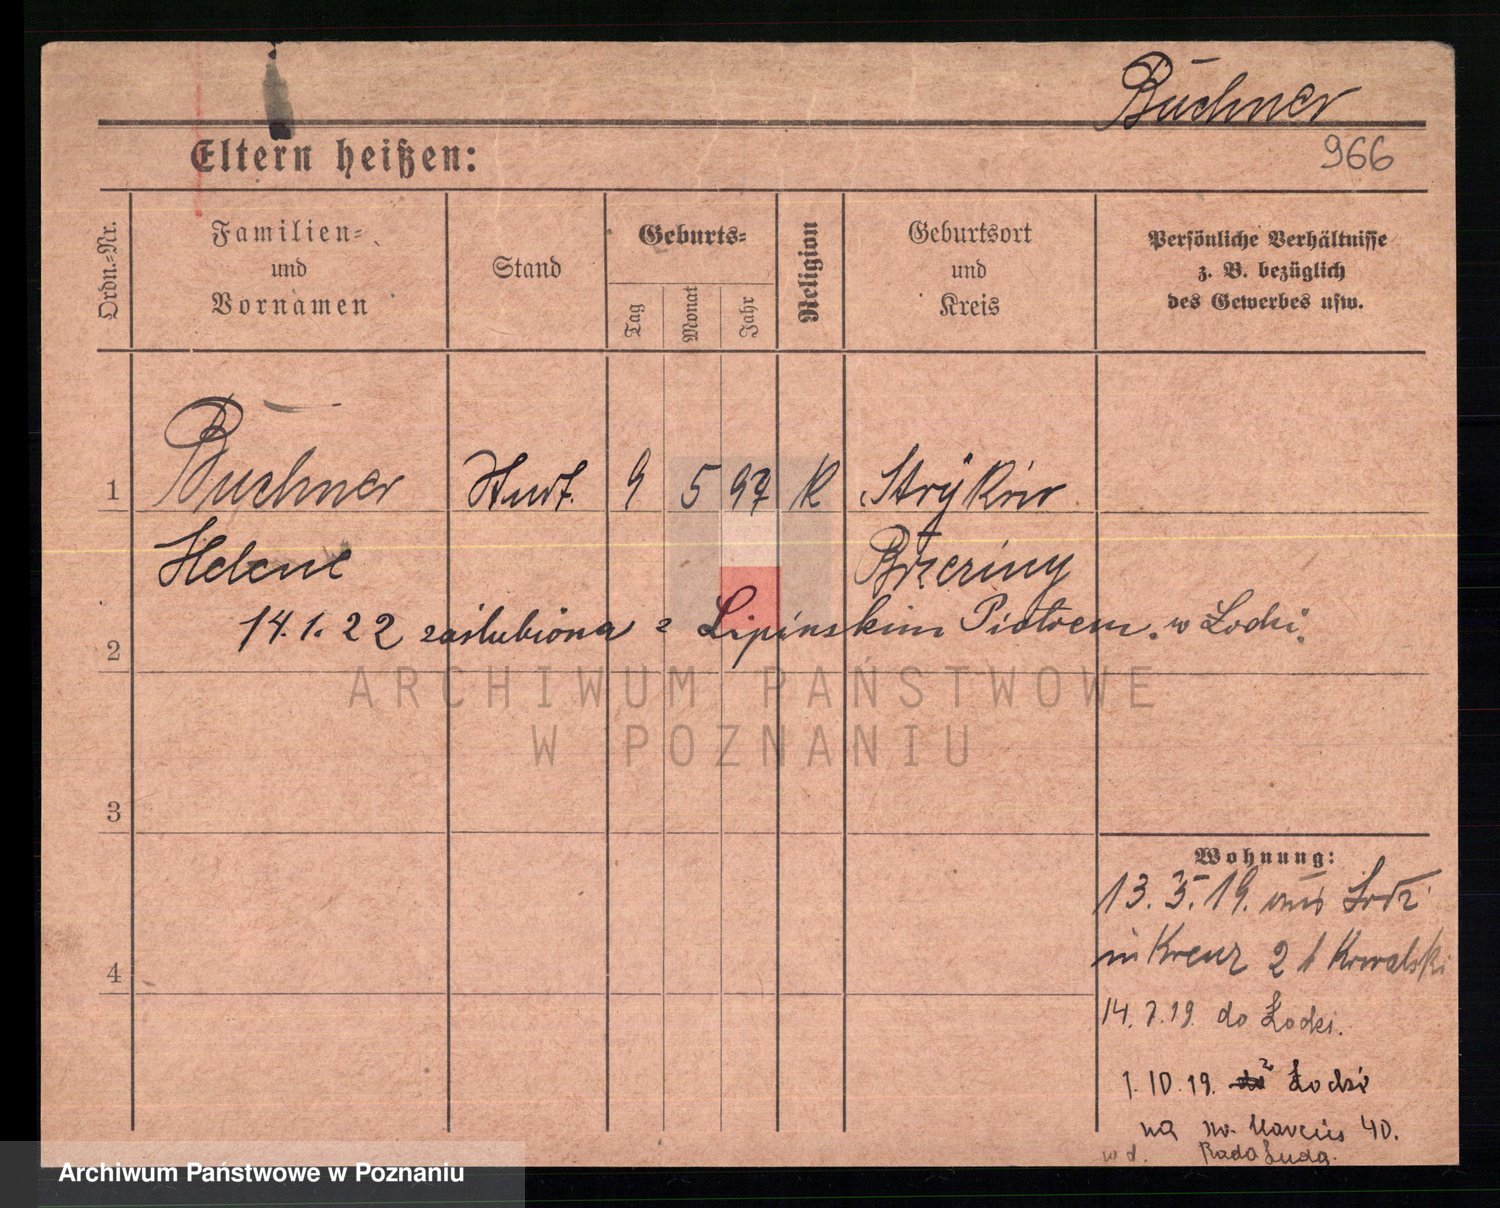 Büchner
966
Eltern heißen:
Ordn.-Nr.
Familien-
und
Vornamen
Stand
Geburts-
Tag
Monat
Jahr
Religion
Geburtsort
und
Kreis
Persönliche Verhältnisse
z. B. bezüglich
des Gewerbes usw.
1 Buchner 9 5 97 K Stryków
Helene Brzeziny
14.1.22 zaślubiona z Lipińskim Piotrem w Łodzi.
2
3
4
Wohnung:
13.5.19. aus Lodz
in Kreuz 2 Kowalski
14.7.19 do Łodzi.
1.10.19. do z Łodzi
na św. Marcin 40.
w d. Rada Lud.
ARCHIWUM PAŃSTWOWE
W POZNANIU
Archiwum Państwowe w Poznaniu